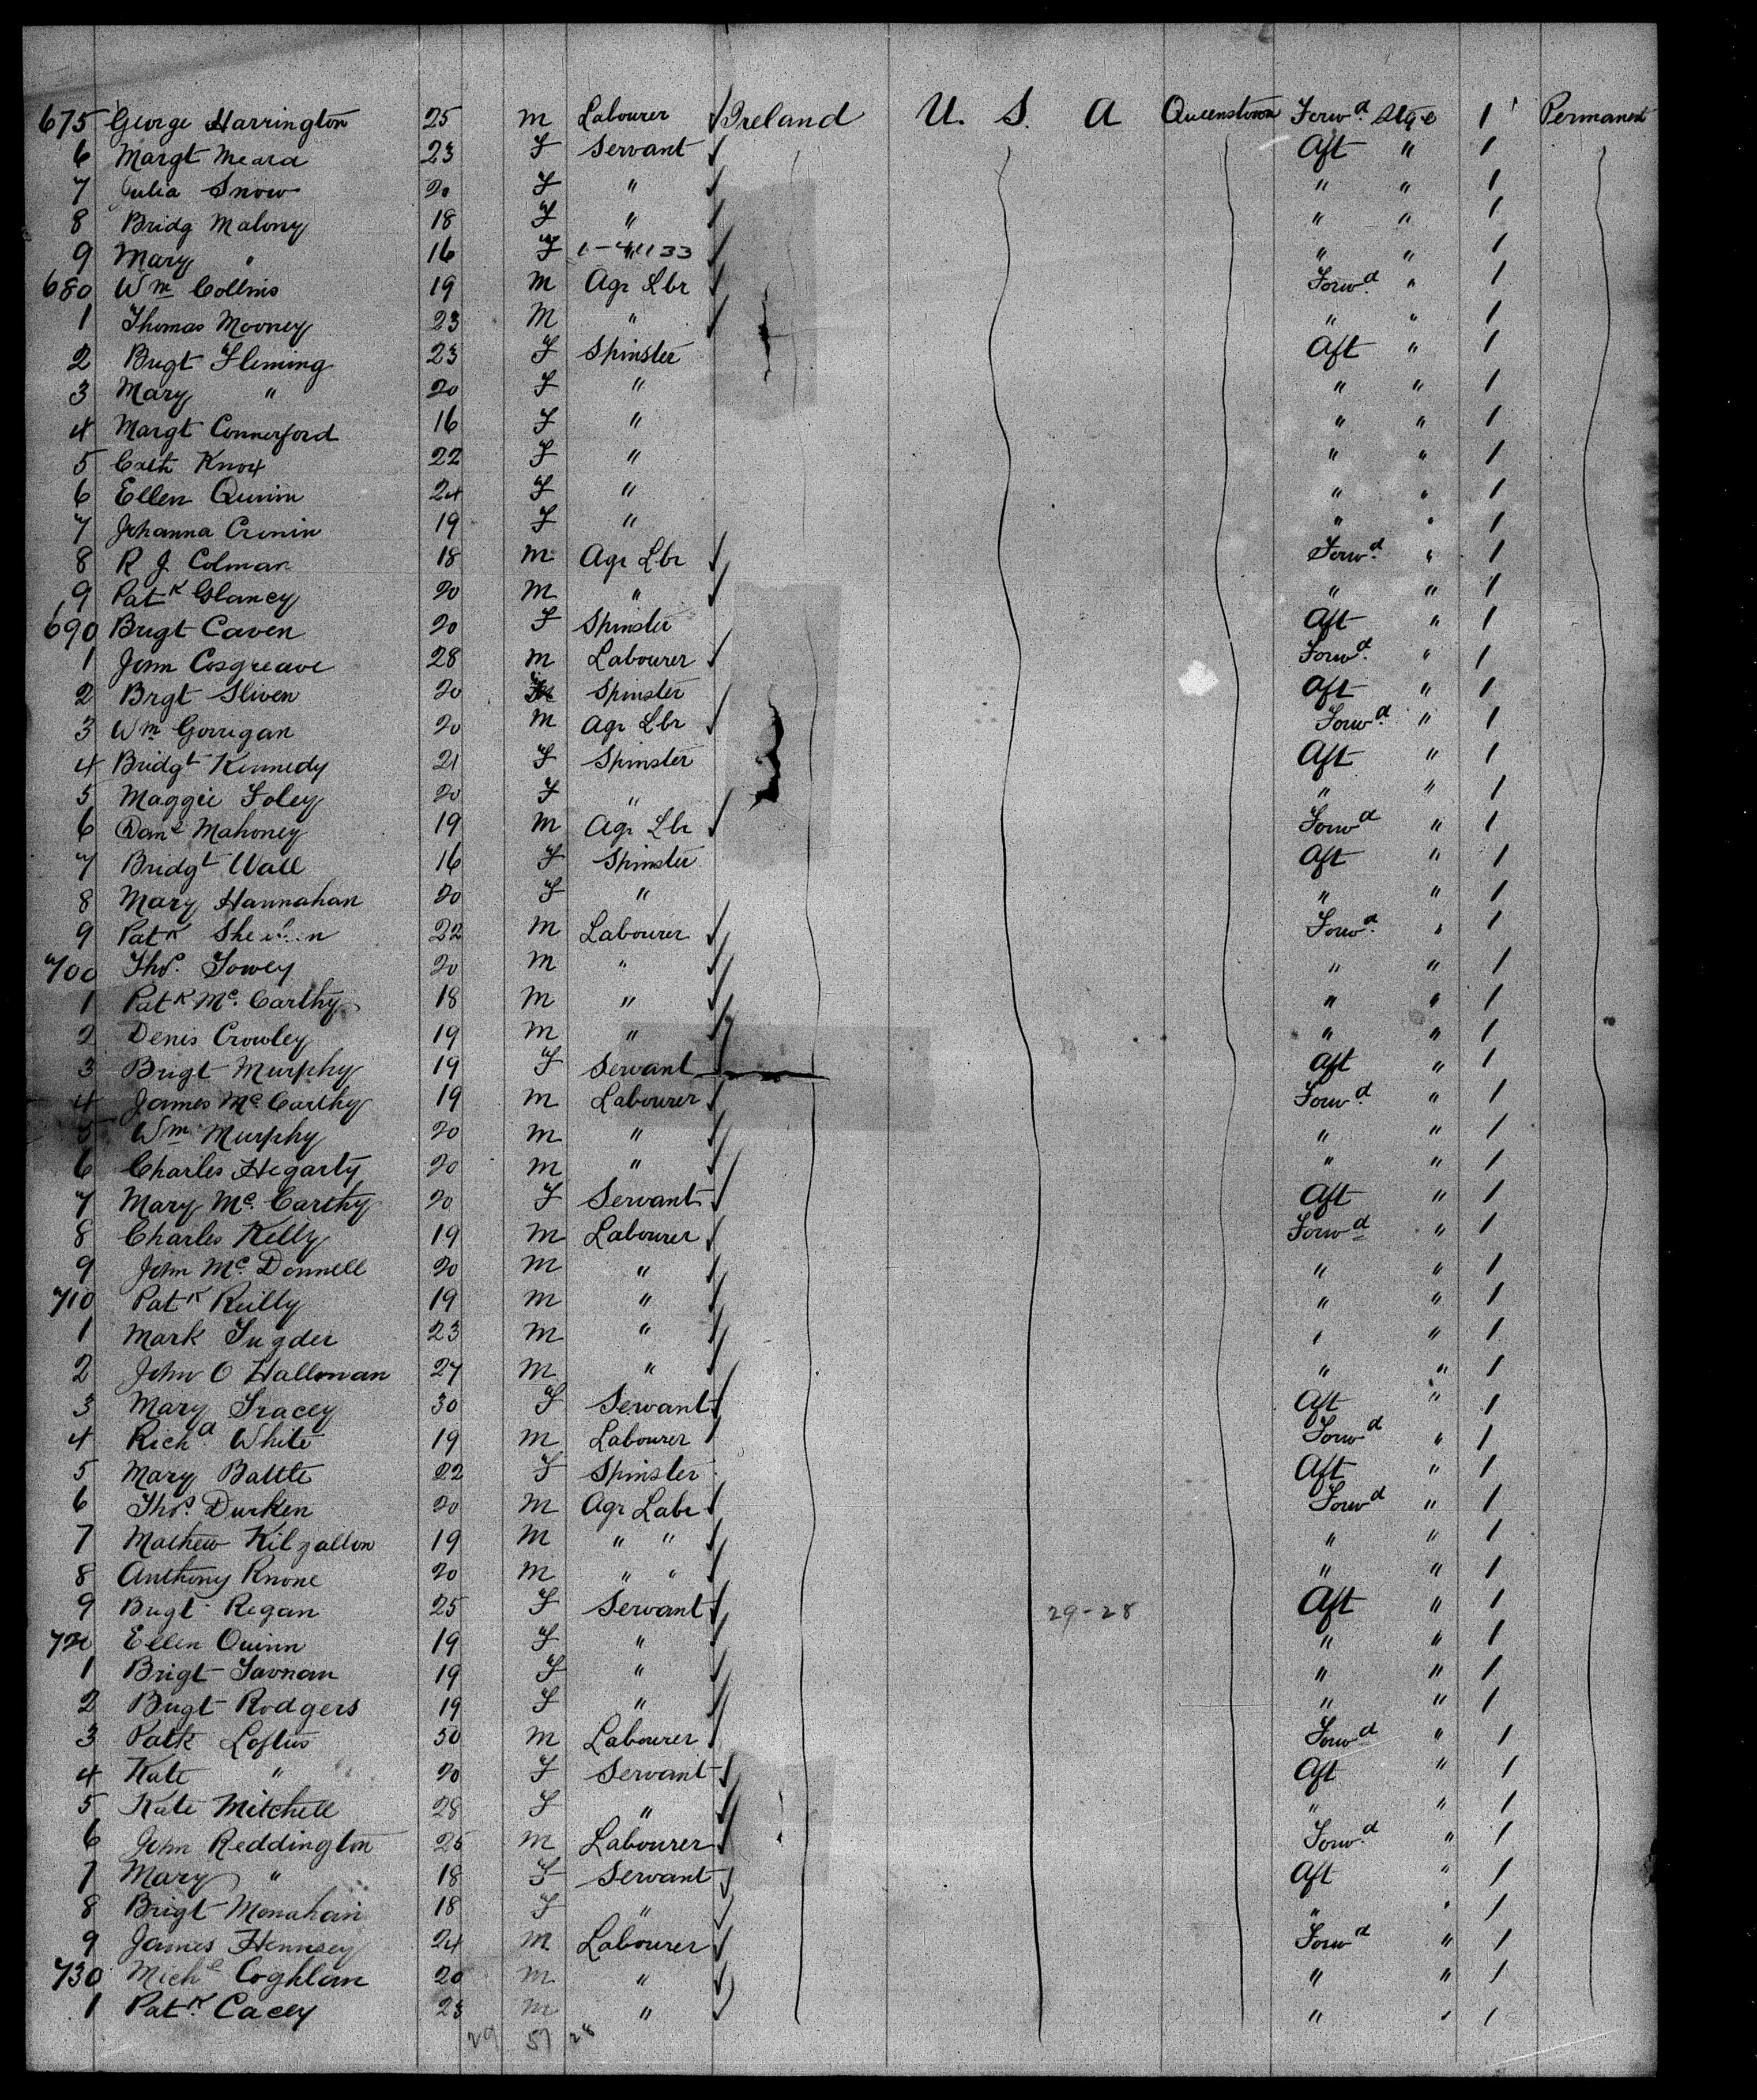 675 George Harrington 25 m Labourer √ Ireland U. S. A Queenstown Forwd. Stge 1 Permanent
6 Margt Meara 23 F Servant √ Aft " 1
7 Julia Snow 20 F " √ " " 1
8 Bridg Malony 18 F " √ " " 1
9 Mary " 16 F " 1133 √ " " 1
680 Wm Collins 19 m Agr Lbr √ Forwd. " 1
1 Thomas Mooney 23 M " √ " " 1
2 Brigt Fleming 23 F Spinster Aft " 1
3 Mary " 20 F " " " 1
4 Margt Connerford 16 F " " " 1
5 Cath Knox 22 F " " " 1
6 Ellen Quinn 24 F " " " 1
7 Johanna Cronin 19 F " " " 1
8 R J. Colman 18 m Agr Lbr √ Forwd. " 1
9 Patk Glancy 20 m " √ " " 1
690 Brigt Caven 20 F Spinster Aft " 1
1 John Cosgreave 28 m Labourer √ Forwd. " 1
2 Brgt Sliven 20 Spinster Aft " 1
3 Wm Gorrigan 20 m Agr Lbr √ Forwd. " 1
4 Bridgt Kennedy 21 F Spinster Aft " 1
5 Maggie Foley 20 F " " " 1
6 Danl Mahoney 19 m Agr Lbr √ Forwd " 1
7 Bridgt Wall 16 F Spinster Aft " 1
8 Mary Hannahan 20 F " " " 1
9 Patk 22 m Labourer √ Forwd. " 1
700 Thos. Towey 20 m " √ " " 1
1 Patk Mc. Carthy 18 m " √ " " 1
2 Denis Crowley 19 m " √ " " 1
3 Brigt Murphy 19 F Servant √ Aft " 1
4 James Mc. Carthy 19 m Labourer √ Forwd. " 1
5 Wm Murphy 20 m " √ " " 1
6 Charles Hegarty 20 m " √ " " 1
7 Mary Mc. Carthy 20 F Servant √ Aft " 1
8 Charles Kelly 19 m Labourer √ Forwd " 1
9 John Mc. Donnell 20 m " √ " " 1
710 Patk Reilly 19 m " √ " " 1
1 Mark 23 m " √ " " 1
2 John O Halloman 27 m " √ " " 1
3 Mary Tracey 30 F Servant √ Aft " 1
4 Richd. White 19 m Labourer √ Forwd " 1
5 Mary Battle 22 F Spinster Aft " 1
6 Thos. Durken 20 m Agr Labr √ Forwd " 1
7 Mathew Kilgallon 19 m " " √ " " 1
8 Anthony 20 m " " √ " " 1
9 Brigt Regan 25 F Servant √ 29-28 Aft " 1
720 Ellen Quinn 19 F " √ " " 1
1 Brigt 19 F " √ " " 1
2 Brigt Rodgers 19 F " √ " " 1
3 Patk Loftus 50 m Labourer √ Forwd " 1
4 Kate " 20 F Servant √ Aft " 1
5 Kate Mitchell 28 F " √ " " 1
6 John Reddington 25 m Labourer √ Forwd. " 1
7 Mary " 18 F Servant √ Aft " 1
8 Brigt Monahan 18 F " √ " " 1
9 James Hennsey 24 m Labourer √ Forwd " 1
730 Michl Coghlan 20 m " √ " " 1
1 Patk. Cacey 23 m " √ " " 1
29 57 28